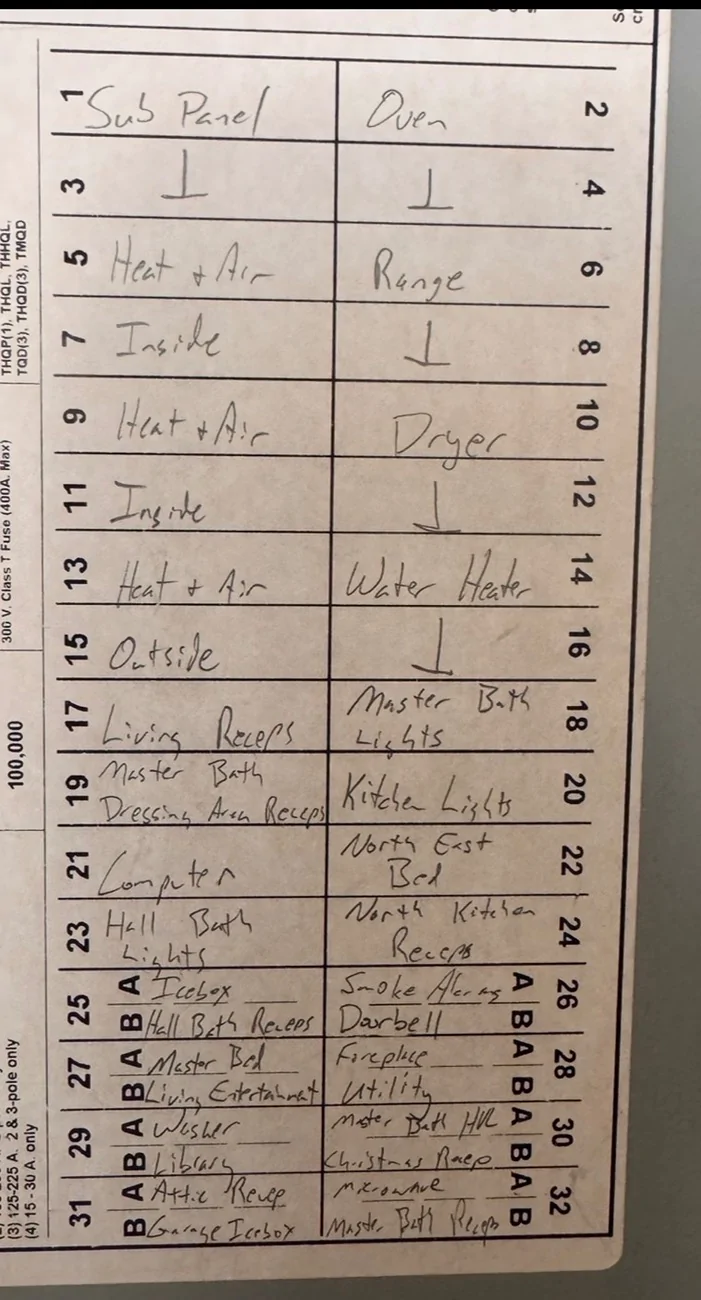 1 Sub Panel Oven 2
3 ⊥ ⊥ 4
5 Heat + Air Range 6
7 Inside ⊥ 8
9 Heat + Air Dryer 10
11 Inside ⊥ 12
13 Heat + Air Water Heater 14
15 Outside ⊥ 16
17 Living Receps Master Bath Lights 18
19 Master Bath Dressing Area Receps Kitchen Lights 20
21 Computer North East Bed 22
23 Hall Bath Lights North Kitchen Receps 24
25 A Icebox Smoke Alarms A 26
B Hall Bath Receps Doorbell B
27 A Master Bed Fireplace A 28
B Living Entertainment Utility B
29 A Washer Master Bath HR A 30
B Library Christmas Recep B
31 A Attic Recep Microwave A 32
B Garage Icebox Master Bath Receps B
THQP(1), THQL, THHQL,
TQD(3), THQD(3), TMQD
300 V. Class T Fuse (400A. Max)
100,000
(3) 125-225 A. 2 & 3-pole only
(4) 15 - 30 A. only